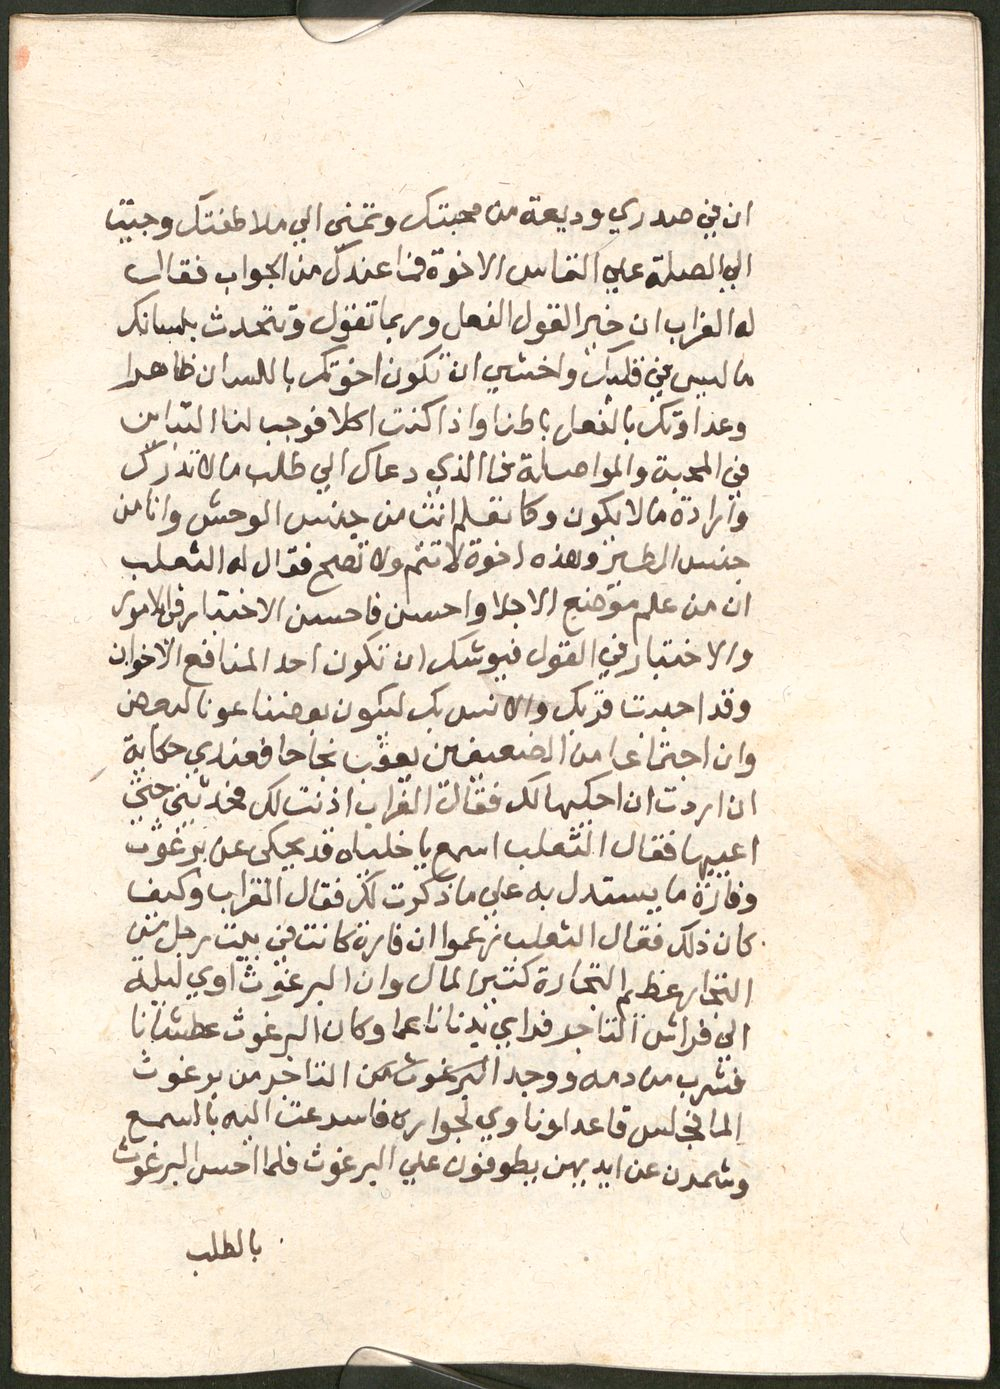 ان في صدري وديعة من محبتك وتمني الي ملاطفتك وجيت
الي الصلة علي التماس الاخوة فما عندك من الجواب فقال
له الغراب ان خير القول الفعل وربما تقول وتتحدث بلسانك
ما ليس في قلبك واخشي ان تكون اخوتك باللسان ظاهرا
وعداوتك بالفعل باطنا واذا كنت اكلا فوجب لنا التباين
في المحبة والمواصلة فما الذي دعاك الي طلب ما لا تدرك
وارادة ما لا يكون وكا تعلم انت من جنس الوحش وانا من
جنس الطير وهذه اخوة لا تتم ولا تصح فقال له الثعلب
ان من علم موضع الاجلا واحسن فاحسن الاختيار في الامور
والاختيار في القول فيوشك ان تكون احد المنافع الاخوان
وقد احببت قربك والانس بك ليكون بعضنا عونا لبعض
وان اجتماعا من الضعيفين يعقب نجاحا فعندي حكاية
ان اردت ان احكيها لك فقالة الغراب اذنت لك فحدثني حتي
اعييها فقال الثعلب اسمع يا خلياه قد يحكي عن برغوث
وفارة ما يستدل به علي ما ذكرت لك فقال الغراب وكيف
كان ذلك فقال الثعلب زعموا ان فارة كانت في بيت رجل من
التجار عظيم التجارة كثير المال وان البرغوث اوي ليلة
الي فراش التاجر فراي بدنا ناعما وكان البرغوث عطشانا
فشرب من دمه ووجد البرغوث من التاجر من برغوث
الما فجلس قاعدا وناوي لجواره فاسرعت اليه بالسمع
وشمرن عن ايديهن يطوفون علي البرغوث فلما احس البرغوث
بالطلب